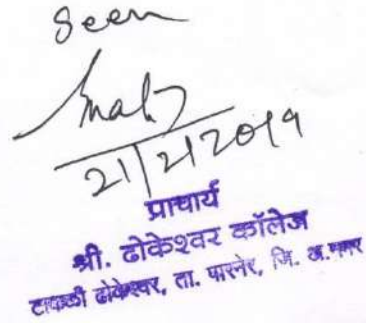 Seen
21/2/2019
प्राचार्य
श्री. ढोकेश्वर कॉलेज
टाकळी ढोकेश्वर, ता. पारनेर, जि. अ.नगर